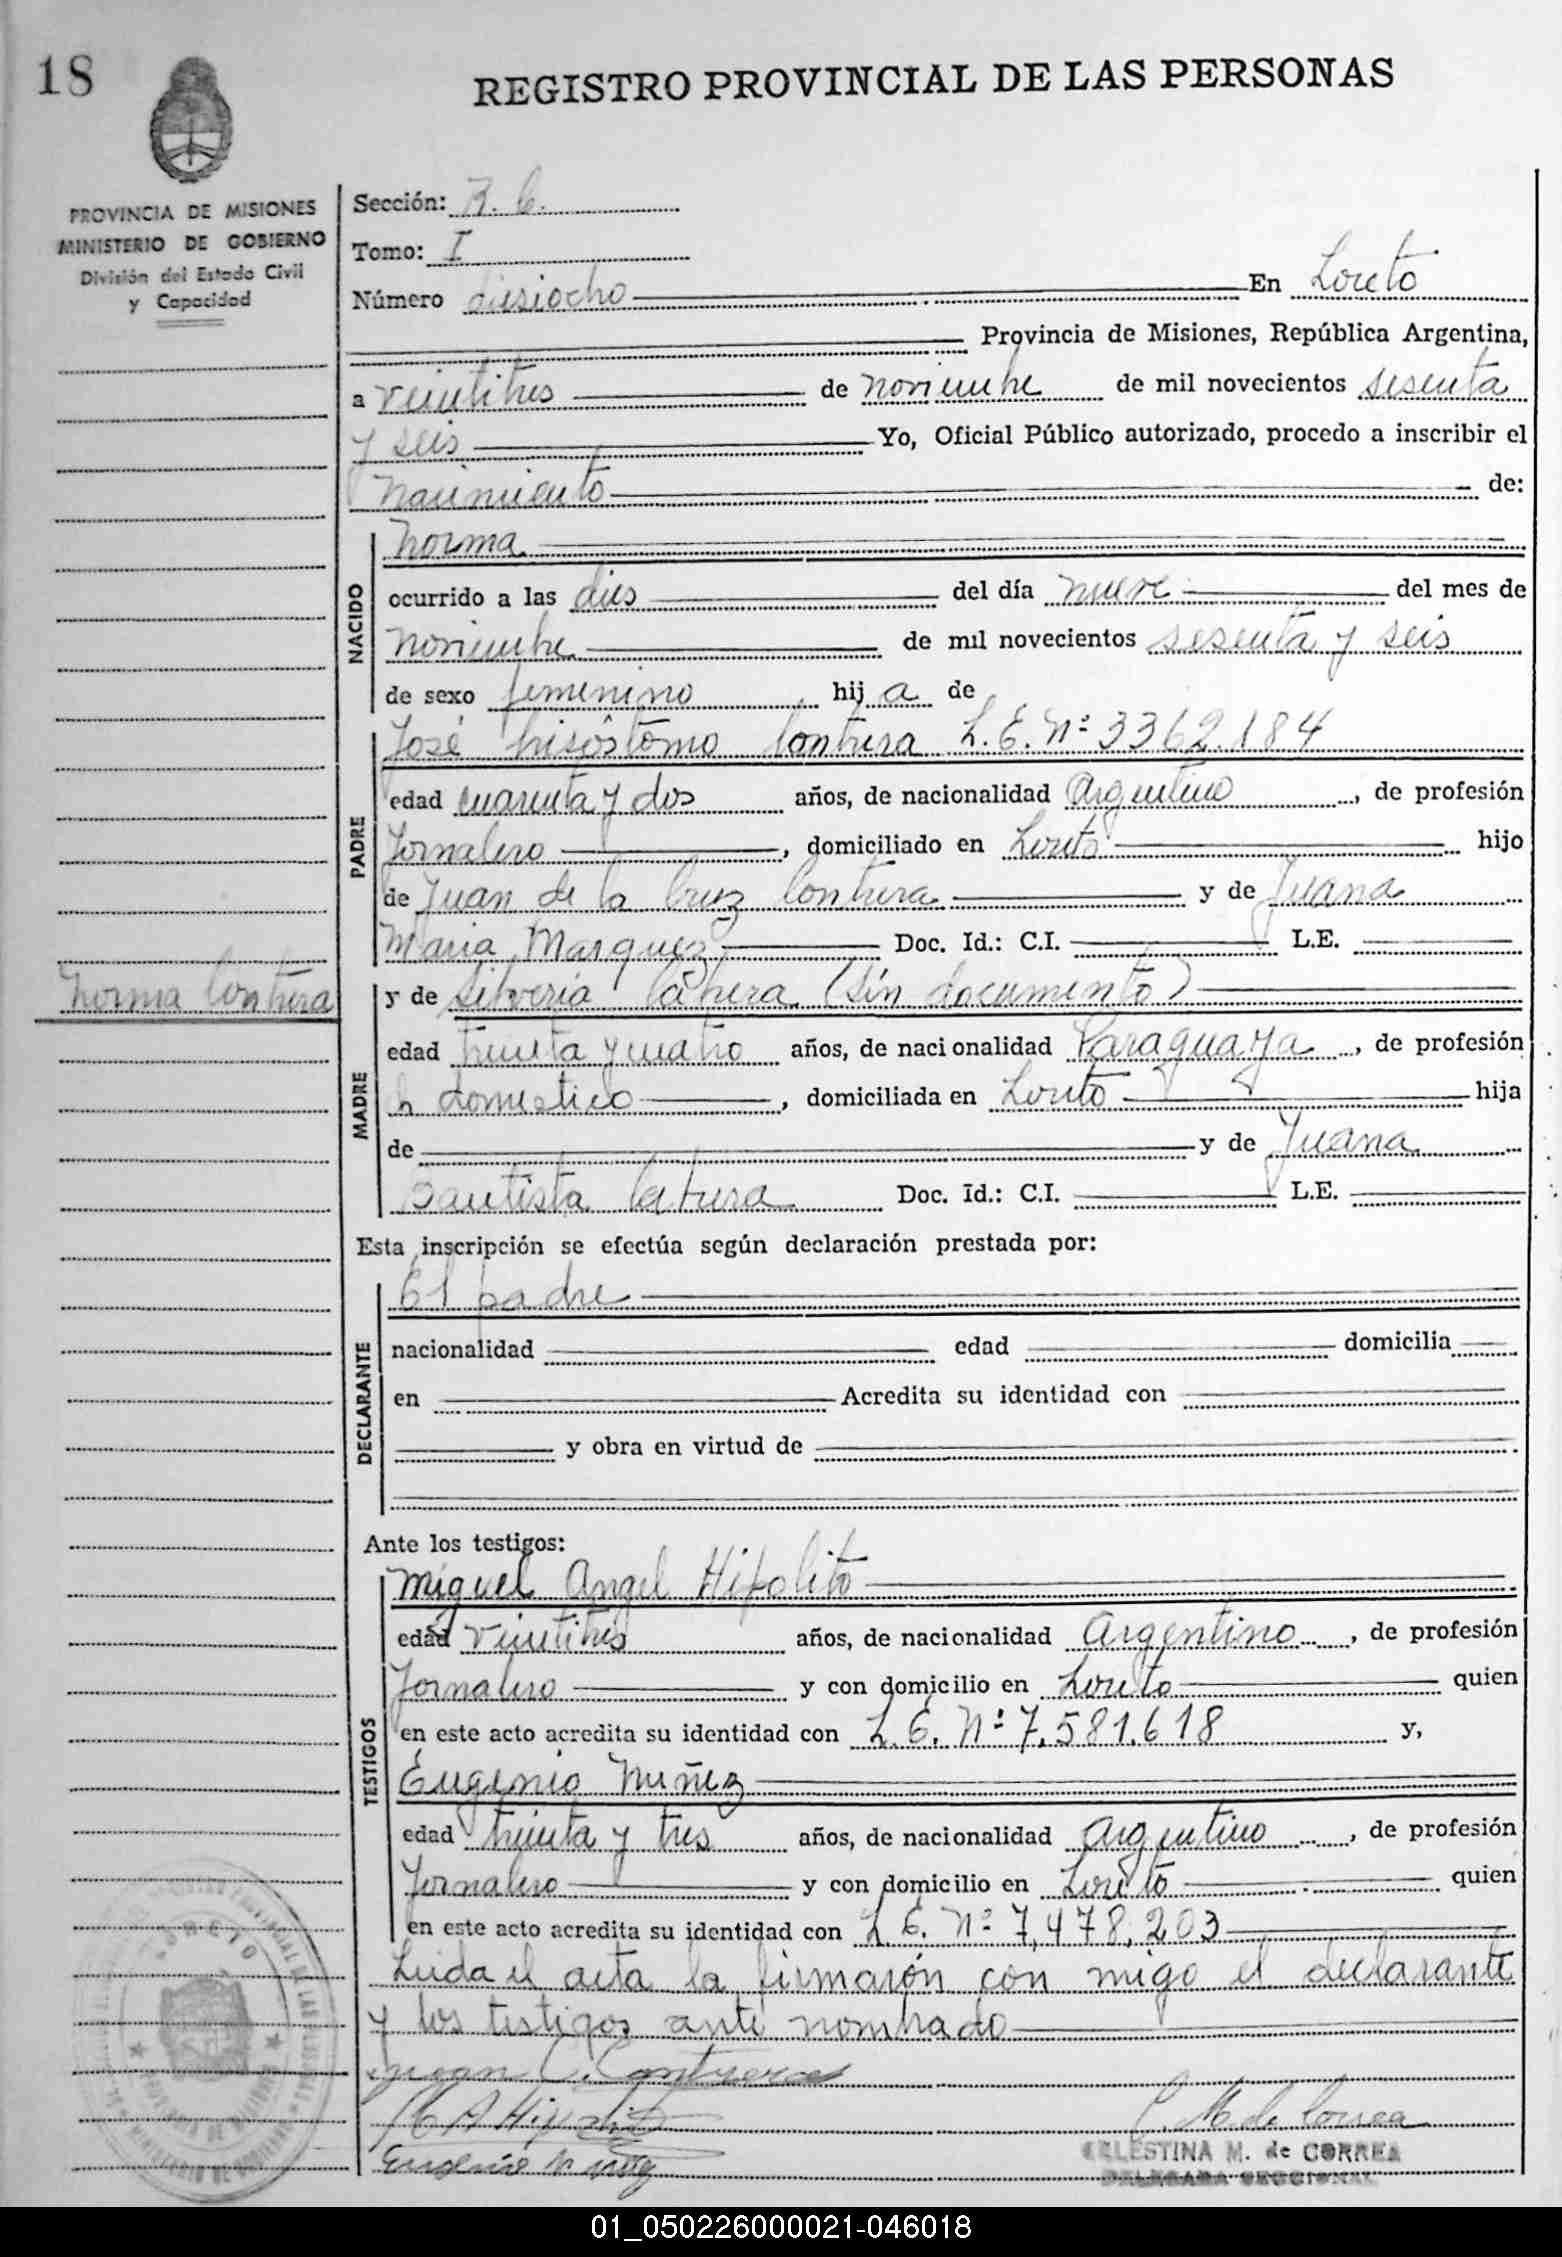 18
REGISTRO PROVINCIAL DE LAS PERSONAS
PROVINCIA DE MISIONES
MINISTERIO DE GOBIERNO
División del Estado Civil
y Capacidad
Sección: R. C.
Tomo: I
Número diesiocho En Loreto
Provincia de Misiones, República Argentina,
a veintitres de noviembre de mil novecientos sesenta
y seis Yo, Oficial Público autorizado, procedo a inscribir el
nacimiento de:
NACIDO
Norma
ocurrido a las dies del día nueve del mes de
noviembre de mil novecientos sesenta y seis
de sexo femenino hij a de
PADRE
José L.E. Nº 3362.184
edad cuarenta y dos años, de nacionalidad Argentino, de profesión
Jornalero, domiciliado en Loreto hijo
de Juan de la Cruz y de Juana
Maria Marquez Doc. Id.: C.I. L.E.
Norma
MADRE
y de Silveria (Sin documento)
edad treinta y cuatro años, de nacionalidad Paraguaya, de profesión
domestico, domiciliada en Loreto hija
de y de Juana
Bautista Doc. Id.: C.I. L.E.
Esta inscripción se efectúa según declaración prestada por:
DECLARANTE
El padre
nacionalidad edad domicilia
en Acredita su identidad con
y obra en virtud de
Ante los testigos:
TESTIGOS
Miguel Angel Hipolito
edad veintitres años, de nacionalidad Argentino, de profesión
Jornalero y con domicilio en Loreto quien
en este acto acredita su identidad con L.E. Nº 7.581.618 y,
Eugenio Nuñez
edad treinta y tres años, de nacionalidad Argentino, de profesión
Jornalero y con domicilio en Loreto quien
en este acto acredita su identidad con L.E. Nº 7,478,203
Leida el acta la firmarón con migo el declarante
y los testigos ante nombrado
M A Hipolito
C. M. de Correa
CELESTINA M. de CORREA
DELEGADA SECCIONAL
LORETO
01_050226000021-046018